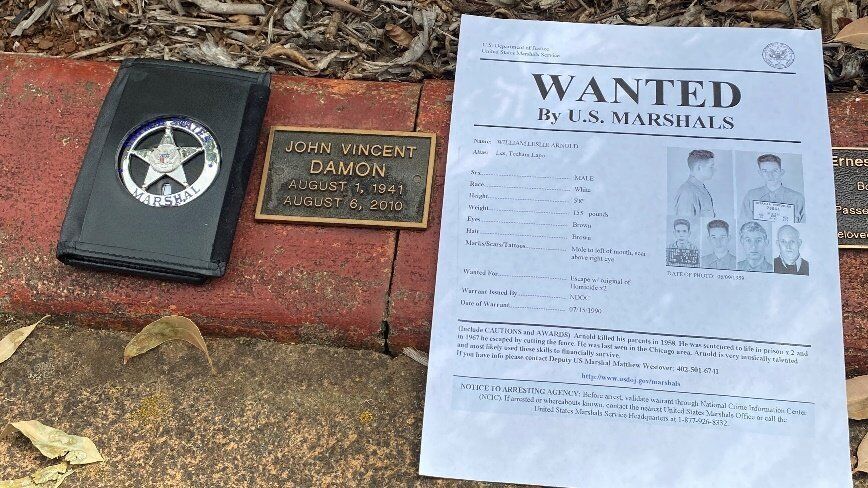 UNITED STATES
MARSHAL
JOHN VINCENT
DAMON
AUGUST 1, 1941
AUGUST 6, 2010
U.S. Department of Justice
United States Marshals Service
WANTED
By U.S. MARSHALS
Name: WILLIAM LESLIE ARNOLD
Alias:
Sex MALE
Race White
Height
Weight 155 pounds
Eyes Brown
Hair Brown
Marks/Scars/Tattoos Mole to left of mouth, scar
above right eye
DATE OF PHOTO:
Wanted For: Escape w/ original of
Homicide x2
Warrant Issued By NDOC
Date of Warrant: 07/15/1990
(Include CAUTIONS and AWARDS) Arnold killed his parents in 1958. He was sentenced to life in prison x 2 and
in 1967 he escaped by cutting the fence. He was last seen in the Chicago area. Arnold is very musically talented
and most likely used these skills to financially survive.
If you have info please contact Deputy US Marshal Matthew Westover:
http://www.usdoj.gov/marshals
NOTICE TO ARRESTING AGENCY: Before arrest, validate warrant through National Crime Information Center
(NCIC). If arrested or whereabouts known, contact the nearest United States Marshals Office or call the
United States Marshals Service Headquarters at 1-877-926-8332.
Ernes
Passe
Belove